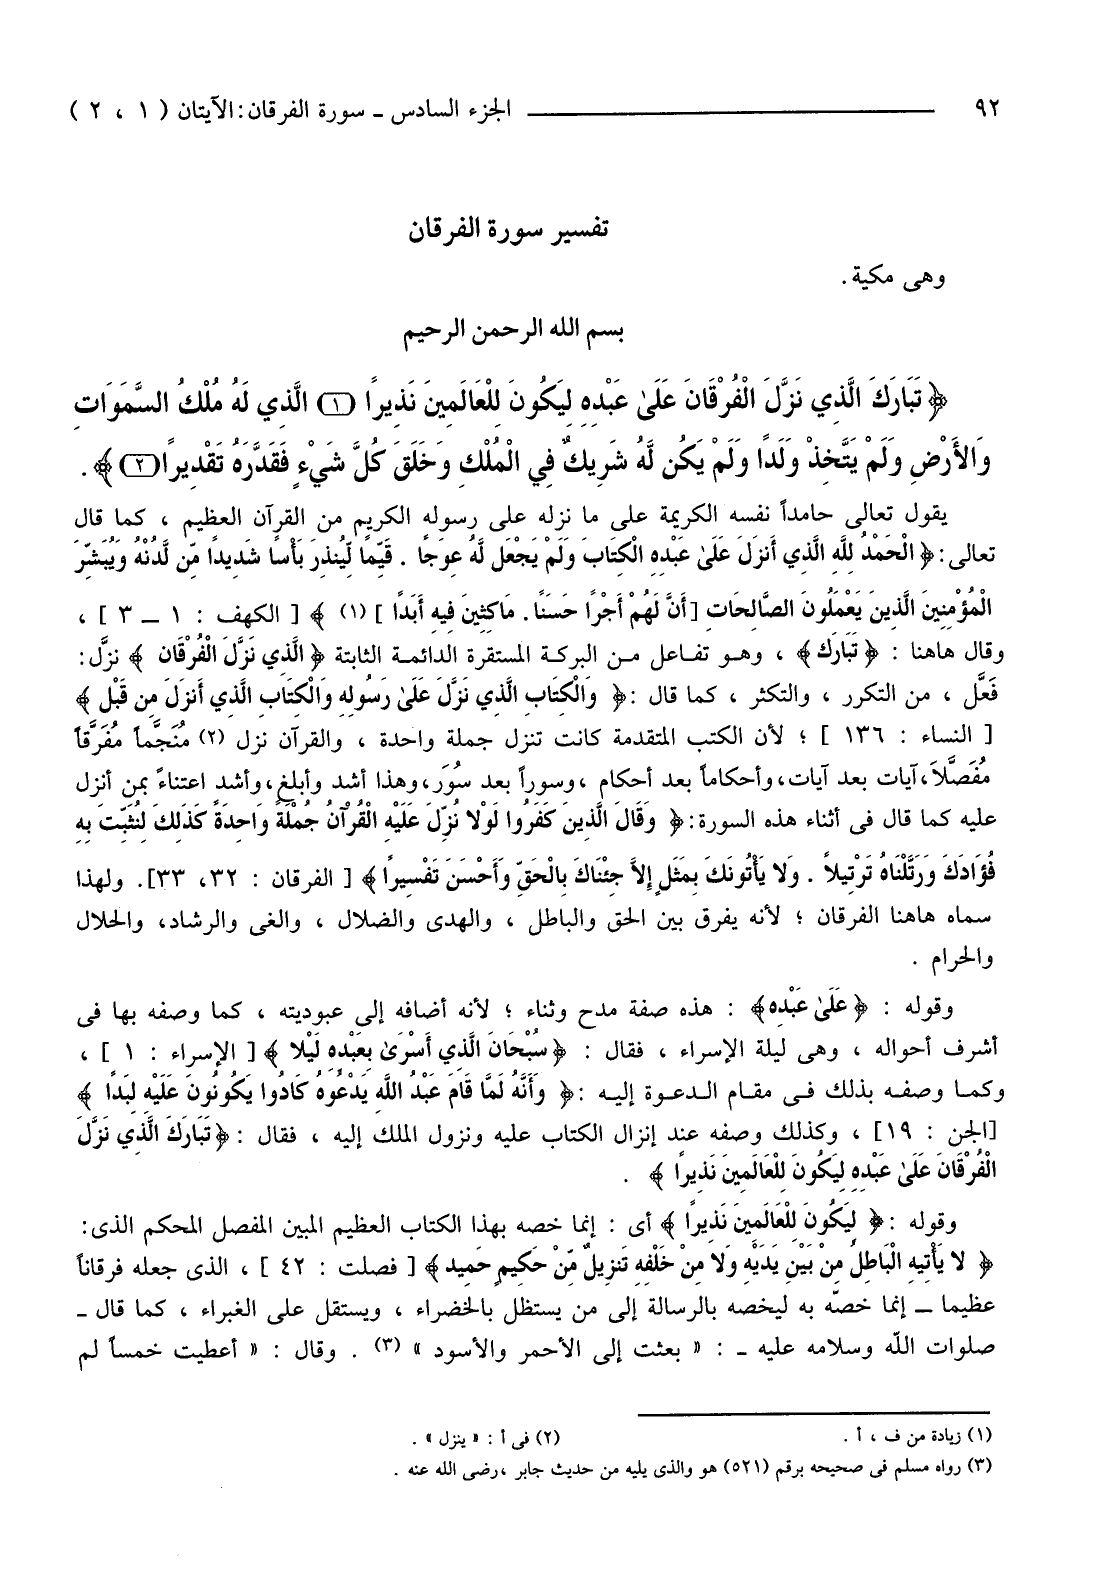 ٩٢ الجزء السادس ــ سورة الفرقان: الآيتان ( ١ ، ٢ )
تفسير سورة الفرقان
وهى مكية.
بسم الله الرحمن الرحيم
﴿ تَبَارَكَ الَّذِي نَزَّلَ الْفُرْقَانَ عَلَىٰ عَبْدِهِ لِيَكُونَ لِلْعَالَمِينَ نَذِيرًا (١) الَّذِي لَهُ مُلْكُ السَّمَوَاتِ
وَالأَرْضِ وَلَمْ يَتَّخِذْ وَلَدًا وَلَمْ يَكُن لَّهُ شَرِيكٌ فِي الْمُلْكِ وَخَلَقَ كُلَّ شَيْءٍ فَقَدَّرَهُ تَقْدِيرًا (٢) ﴾ .
يقول تعالى حامداً نفسه الكريمة على ما نزله على رسوله الكريم من القرآن العظيم ، كما قال
تعالى: ﴿ الْحَمْدُ لِلَّهِ الَّذِي أَنزَلَ عَلَىٰ عَبْدِهِ الْكِتَابَ وَلَمْ يَجْعَل لَّهُ عِوَجًا . قَيِّمًا لِّيُنذِرَ بَأْسًا شَدِيدًا مِّن لَّدُنْهُ وَيُبَشِّرَ
الْمُؤْمِنِينَ الَّذِينَ يَعْمَلُونَ الصَّالِحَاتِ [أَنَّ لَهُمْ أَجْرًا حَسَنًا. مَاكِثِينَ فِيهِ أَبَدًا ] (١) ﴾ [ الكهف : ١ ــ ٣ ] ،
وقال هاهنا : ﴿ تَبَارَكَ ﴾ ، وهو تفاعل من البركة المستقرة الدائمة الثابتة ﴿ الَّذِي نَزَّلَ الْفُرْقَانَ ﴾ نزَّل:
فَعَّل ، من التكرر ، والتكثر ، كما قال : ﴿ وَالْكِتَابِ الَّذِي نَزَّلَ عَلَىٰ رَسُولِهِ وَالْكِتَابِ الَّذِي أَنزَلَ مِن قَبْلُ ﴾
[ النساء : ١٣٦ ] ؛ لأن الكتب المتقدمة كانت تنزل جملة واحدة ، والقرآن نزل (٢) مُنَجَّماً مُفَرَّقاً
مُفَصَّلاَ،آيات بعد آيات،وأحكاماً بعد أحكام ،وسوراً بعد سُوَر،وهذا أشد وأبلغ،وأشد اعتناءً بمن أنزل
عليه كما قال فى أثناء هذه السورة: ﴿ وَقَالَ الَّذِينَ كَفَرُوا لَوْلا نُزِّلَ عَلَيْهِ الْقُرْآنُ جُمْلَةً وَاحِدَةً كَذَلِكَ لِنُثَبِّتَ بِهِ
فُؤَادَكَ وَرَتَّلْنَاهُ تَرْتِيلاً . وَلا يَأْتُونَكَ بِمَثَلٍ إِلاَّ جِئْنَاكَ بِالْحَقِّ وَأَحْسَنَ تَفْسِيرًا ﴾ [ الفرقان : ٣٢، ٣٣]. ولهذا
سماه هاهنا الفرقان ؛ لأنه يفرق بين الحق والباطل ، والهدى والضلال ، والغى والرشاد، والحلال
والحرام .
وقوله : ﴿ عَلَىٰ عَبْدِهِ﴾ : هذه صفة مدح وثناء ؛ لأنه أضافه إلى عبوديته ، كما وصفه بها فى
أشرف أحواله ، وهى ليلة الإسراء ، فقال : ﴿ سُبْحَانَ الَّذِي أَسْرَىٰ بِعَبْدِهِ لَيْلا ﴾ [ الإسراء : ١ ] ،
وكما وصفه بذلك فى مقام الدعوة إليه : ﴿ وَأَنَّهُ لَمَّا قَامَ عَبْدُ اللَّهِ يَدْعُوهُ كَادُوا يَكُونُونَ عَلَيْهِ لِبَدًا ﴾
[الجن : ١٩] ، وكذلك وصفه عند إنزال الكتاب عليه ونزول الملك إليه ، فقال : ﴿ تَبَارَكَ الَّذِي نَزَّلَ
الْفُرْقَانَ عَلَىٰ عَبْدِهِ لِيَكُونَ لِلْعَالَمِينَ نَذِيرًا ﴾ .
وقوله : ﴿ لِيَكُونَ لِلْعَالَمِينَ نَذِيرًا ﴾ أى : إنما خصه بهذا الكتاب العظيم المبين المفصل المحكم الذى:
﴿ لا يَأْتِيهِ الْبَاطِلُ مِنْ بَيْنِ يَدَيْهِ وَلا مِنْ خَلْفِهِ تَنزِيلٌ مِّنْ حَكِيمٍ حَمِيد ﴾ [ فصلت : ٤٢ ] ، الذى جعله فرقاناً
عظيما ــ إنما خصّه به ليخصه بالرسالة إلى من يستظل بالخضراء ، ويستقل على الغبراء ، كما قال ــ
صلوات اللّه وسلامه عليه ــ : « بعثت إلى الأحمر والأسود » (٣) . وقال : « أعطيت خمساً لم
(١) زيادة من ف ، أ . (٢) فى أ : « ينزل » .
(٣) رواه مسلم فى صحيحه برقم (٥٢١) هو والذى يليه من حديث جابر ،رضى الله عنه .